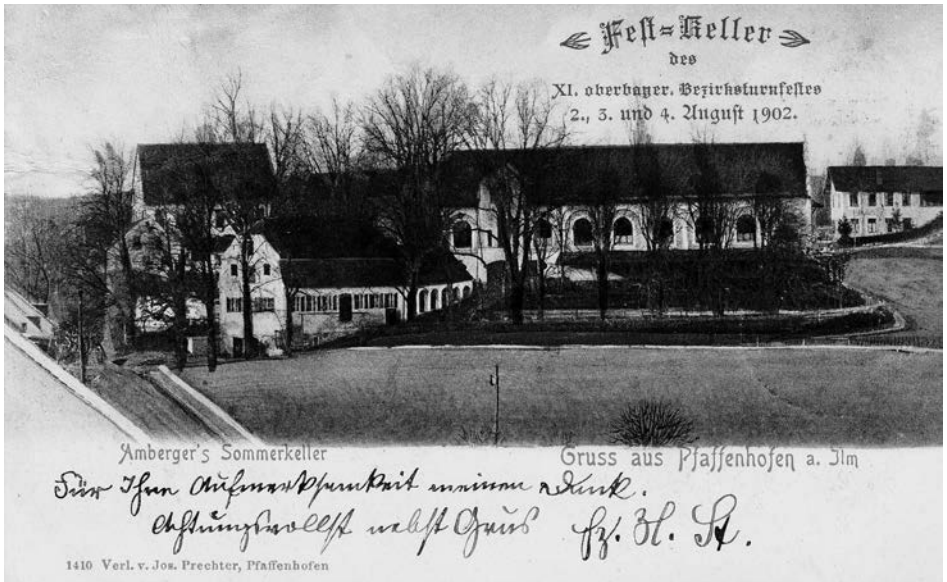 Fest=Keller
des
XI. oberbayer. Bezirksturnfestes
2., 3. und 4. August 1902.
Amberger's Sommerkeller
Gruss aus Pfaffenhofen a. Ilm
Für Ihre Aufmerksamkeit meinen Dank.
Achtungsvollst nebst Grus
St.
1410 Verl. v. Jos. Prechter, Pfaffenhofen